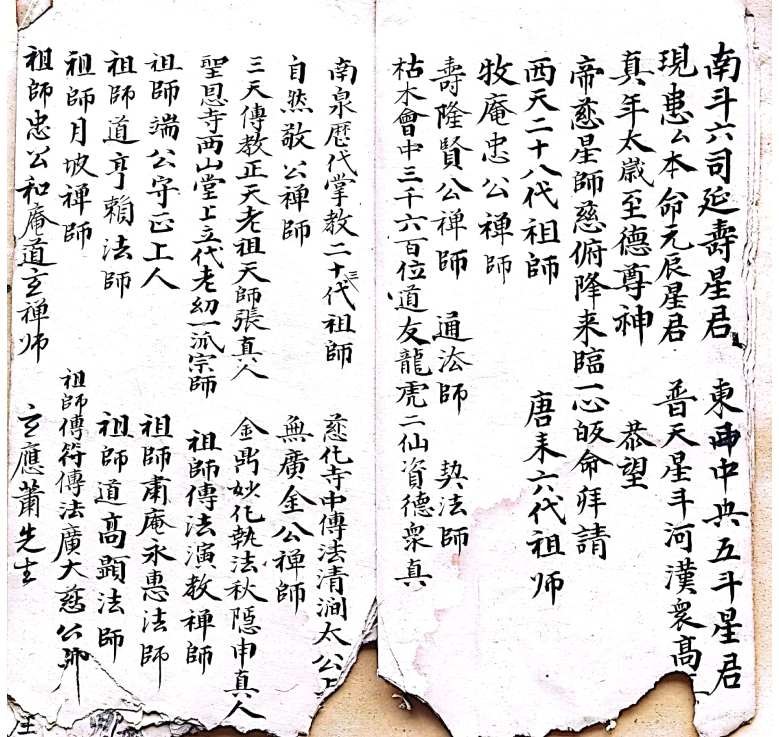 南斗六司延壽星君　東西中央五斗星君
現患厶本命元辰星君　普天星斗河漢衆高
真年太歲至德尊神　恭望
帝慈星師慈俯降来臨一心皈命拜請
西天二十八代祖师　唐来六代祖师
牧庵忠公禅師
壽隆賢公禅師　通法師　契法師
枯木會中三千六百位道友龍虎二仙資德衆真
南泉歷代掌教二十三代祖師　慈化寺中傳法清澗太公
自然敬公禅師　無廣金公禅師
三天傳教正天老祖天師張真人　金門妙化執法秋隱申真人
聖恩寺西山堂上立代老幼一派宗師　祖師傳法演教禅師
祖師端公守正上人　祖師肅庵永惠法师
祖師道亨賴法師　祖師道高顕法師
祖師月坡禅師　祖師傳符傳法廣大慈公師
祖师忠公和庵道玄禅师　玄應蕭先生